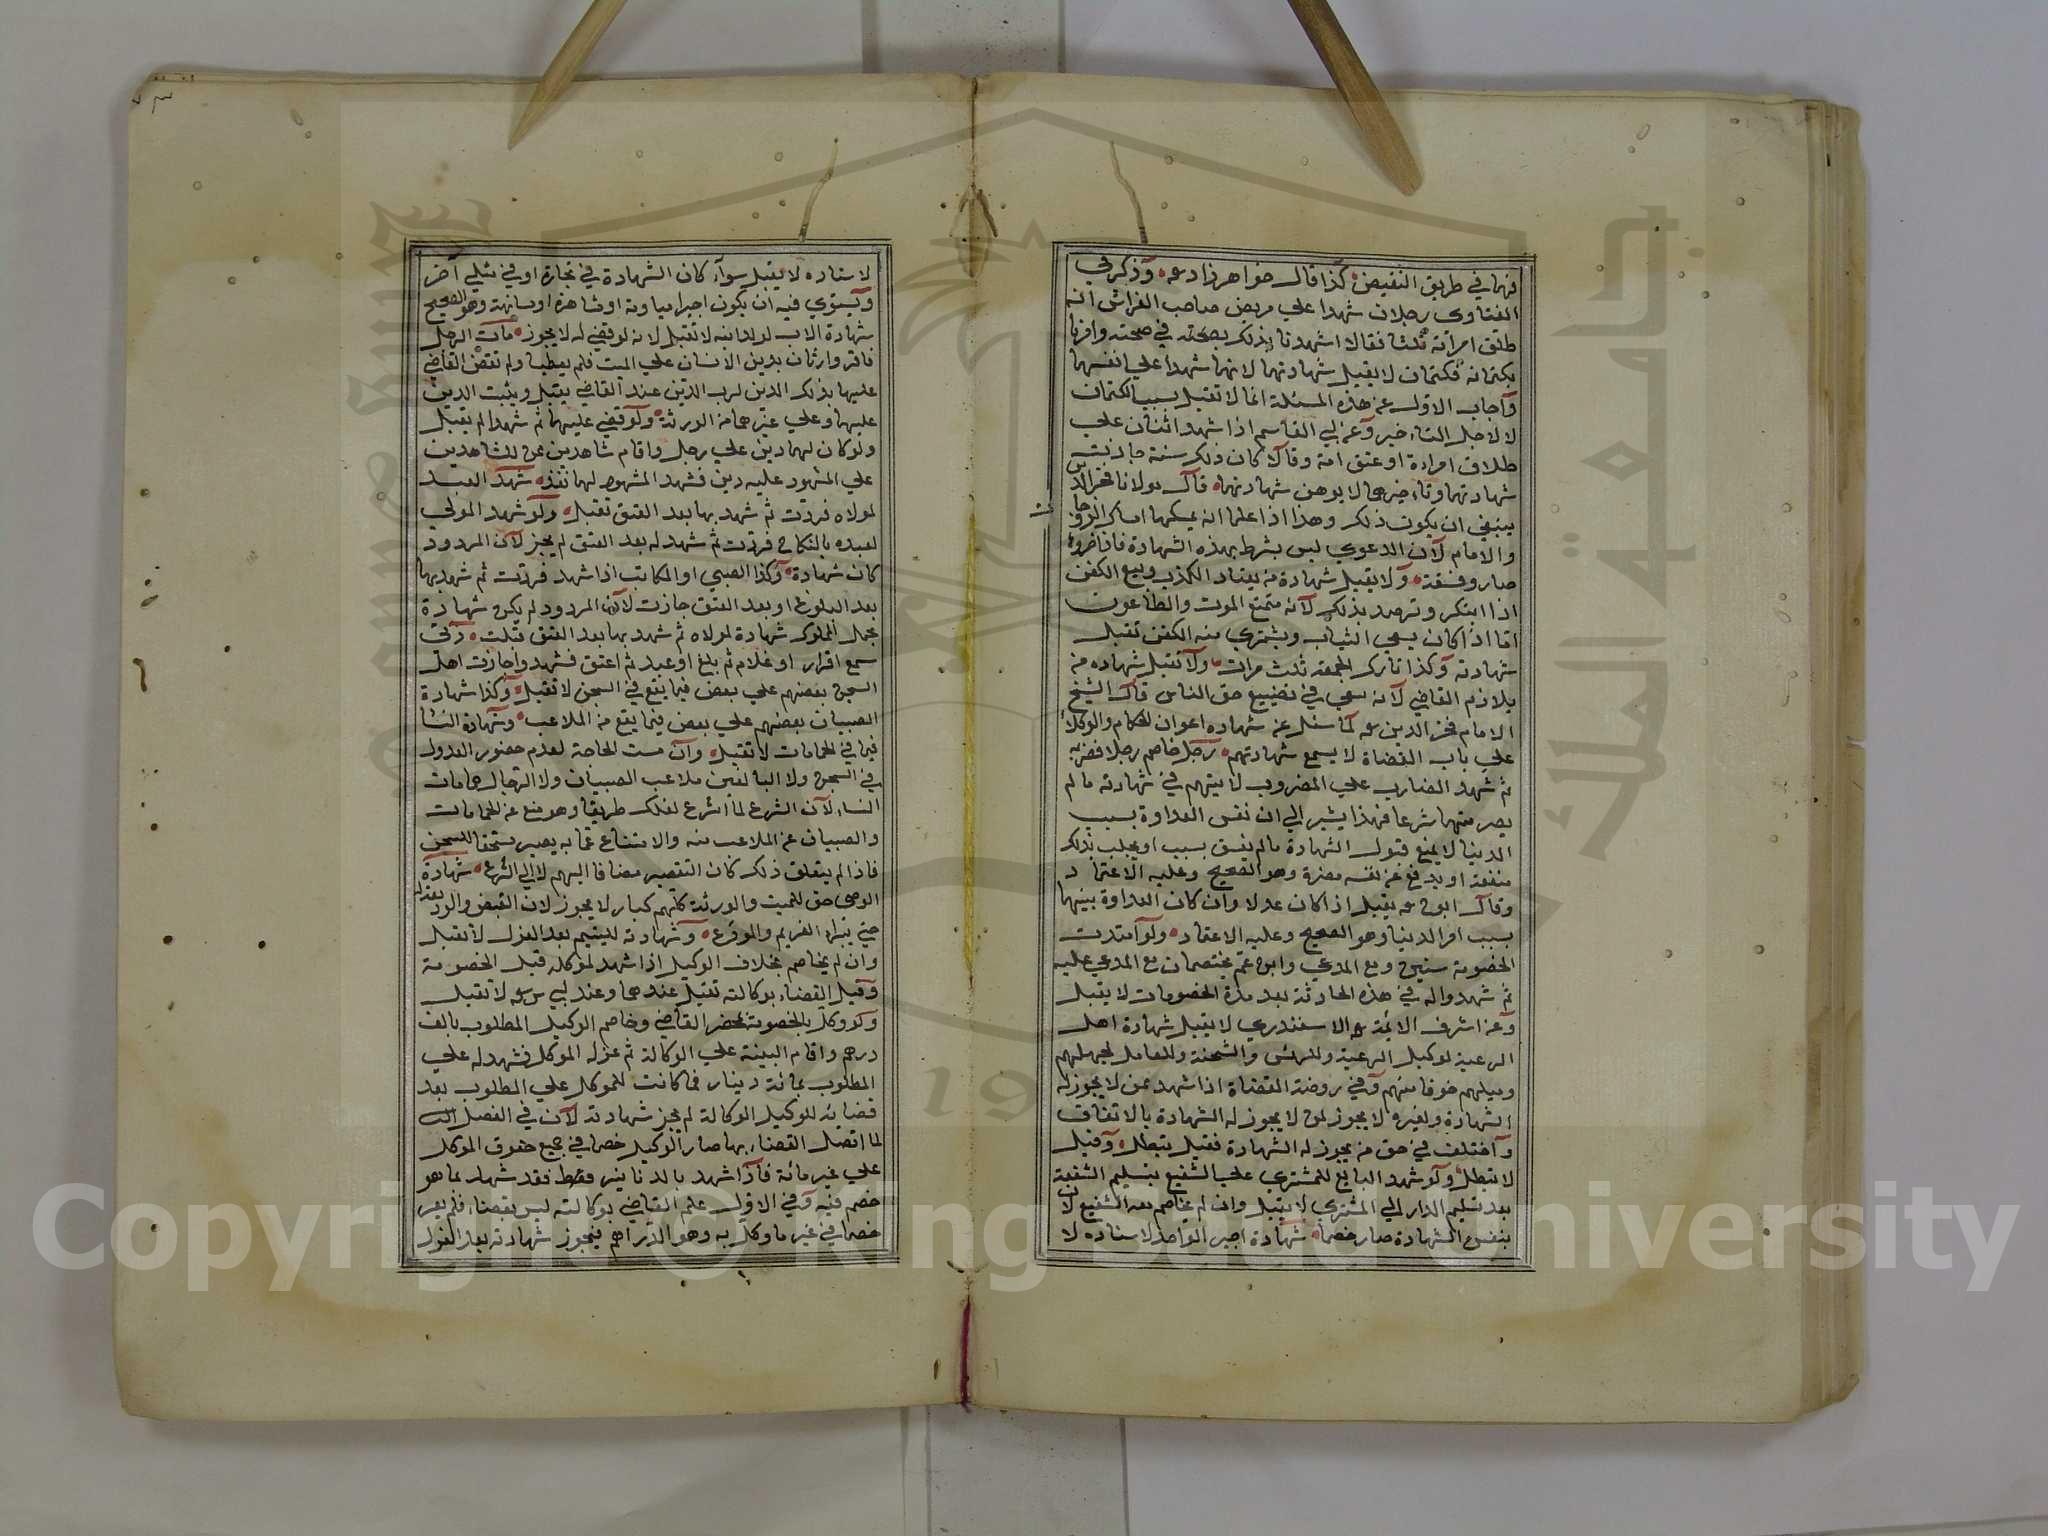 فهما في طريق النقيض كذا قال خواهرزاده رحمه وذكر في
الفتاوى رجلان شهدا علي مريض صاحب الفراش انه
طلق امراته ثلثا فقالا اشهدنا بذلك بصحته في صحته وامرنا
بكتمانه فكتمان لا يقبل شهادتهما لانهما شهدا علي انفسهما
واجاب الاول عن هذه المسئلة انما لا تقبل بسبب الكتمان
لا لاجل التاخير وعن ابي القاسم اذا شهد اثنان علي
طلاق امراة او عتق امة وقالا كان ذلك سنة جازت
شهادتهما وتاخيرهما لا يوهن شهادتهما قال مولانا فخر الدين
ينبغي ان يكون ذلك وهذا اذا علما انه يمسكها امساك الزوجات
والاماء لان الدعوي ليس بشرط بهذه الشهادة فاذا اخروه
صاروا فسقة ولا يقبل شهادة من يعتاد الكذب وبيع الكفن
اذا ابتكر وترصد بذلك لانه متمني الموت والطاعون
اما اذا كان يبيع الثياب ويشتري منه الكفن تقبل
شهادته وكذا تارك الجمعة ثلث مرات ولا تقبل شهادة من
يلازم القاضي لانه سعي في تضييع حق الناس قال الشيخ
الامام فخر الدين رحمه لما سئل عن شهادة اعوان الحكام والوكلاء
علي باب القضاة لا يسمع شهادتهم رجل خاصم رجلا فضربه
ثم شهد الضارب علي المضروب لا يتهم في شهادته ما لم
يصر متهما شرعا فهذا يشير الي ان نفس العداوة بسبب
الدنيا لا يمنع قبول الشهادة ما لم يفسق بسبب او يجلب بذلك
منفعة او يدفع عن نفسه مضرة وهو الصحيح وعليه الاعتماد
وقال ابو ح رحمه يقبل اذا كان عدلا وان كان العداوة بينهما
بسبب امر الدنيا وهو الصحيح وعليه الاعتماد ولو امتدت
الخصومة سنين ومع المدعي وابن عم يختصمان مع المدعي عليه
ثم شهدوا له في هذه الحادثة بعد مدة الخصومات لا يقبل
وعن اشرف الائمة رحمه الاسفندري لا يقبل شهادة اهل
الرعية لوكيل الرعية وللرئس والشحنة وللعامل لجهلهم
وميلهم خوفا منهم وفي روضة القضاة اذا شهد لمن لا يجوز له
الشهادة ولغيره لا يجوز لمن لا يجوز له الشهادة بالاتفاق
واختلف في حق من يجوز له الشهادة فقيل يبطل وقيل
لا تبطل ولو شهد البايع للمشتري علي الشفيع بتسليم الشفعة
بعد تسليم الدار الي المشتري لا يقبل وان لم يخاصم معه الشفيع لان
بنفس الشهادة صار خصما شهادة اجير الواحد لاستاده لا
لاستاده لا يقبل سواء كان الشهادة في تجارة او في شيء اخر
ويستوي فيه ان يكون اجيرا مياومة او مشاهرة او مسانهة وهو الصحيح
شهادة الاب لولد ابنه لا تقبل لانه لو قضي له لا يجوز مات الرجل
فاقر وارثان بدين لانسان علي الميت فلم يعطيا ولم تقض القاضي
عليهما بذلك الدين لرب الدين عند القاضي يقبل ويثبت الدين
عليهما وعلي غيرهما من الورثة ولو قضي عليهما ثم شهدا لم يقبل
ولو كان لهما دين علي رجل واقام شاهدين عن للشاهدين
علي المشهود عليه دين فشهد المشهود لهما تنفذ شهد العبد
لمولاه فردت ثم شهد بها بعد العتق تقبل ولو شهد المولي
لعبده بالنكاح فردت ثم شهد له بعد العتق لم يجز لان المردود
كان شهادة وكذا الصبي او المكاتب اذا شهد فردت ثم شهد بها
بعد البلوغ او بعد العتق جازت لان المردود لم يكن شهادة
تحمل المملوك شهادة لمولاه ثم شهد بها بعد العتق قبلت ذمي
سمع اقرار او غلام ثم بلغ او عبد ثم اعتق فشهد واجازت اهل
السجن بعضهم علي بعض فيما يقع في السجن لا تقبل وكذا شهادة
الصبيان بعضهم علي بعض فيما يقع من الملاعب وشهادة النساء
فيما في الحمامات لا تقبل وان مست الحاجة لعدم حضور العدول
في السجن ولا البالغين ملاعب الصبيان ولا الرجال حمامات
النساء لان الشرع لما شرع لذلك طريقا وهو منع عن الحمامات
والصبيان عن الملاعب منه والامتناع عما به يصير مستحقا للسجن
فاذا لم يتعلق ذلك كان التقصير مضافا اليهم لا الي الشرع شهادة
الوصي حق للميت والورثة كلهم كبار لا يجوز لان القبض والرد بعد له
حتي يبراء الغريم والمودع وشهادته لليتيم بعد العزل لا تقبل
وان لم يخاصم بخلاف الوكيل اذا شهد لموكله قبل الخصومة
وقيل القضاء بوكالته تقبل عندهما وعند ابي س رحمه لا تقبل
ولو وكل بالخصومة بمحضر القاضي وخاصم الوكيل المطلوب بالف
درهم واقام البينة علي الوكالة ثم عزله الموكل فشهد له علي
المطلوب بمائة دينار فما كانت للموكل علي المطلوب بعد
قضائه للوكيل الوكالة لم يجز شهادته لان في الفصل الثاني
لما اتصل القضاء بها صار الوكيل خصما في جميع حقوق الموكل
علي غير مائة فاذا شهد بالدنانير فقط فقد شهد بما هو
خصم فيه وفي الاول علم القاضي بوكالته ليس بقضاء فلم يصر
خصما في غير ما وكل به وهو الدراهم فيجوز شهادته بعد العزل
Copyright © King Saud University